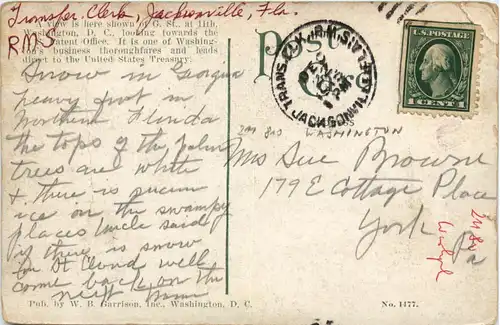 Transfer Clerk, Jacksonville, Fla.
RMS
A view is here shown of G. St., at 11th,
Washington, D. C., looking towards the
Patent Office. It is one of Washing-
ton's business thoroughfares and leads
direct to the United States Treasury.
Snow in Georgia
heavy frost in
Northern Florida
the tops of the palm
trees are white
& there is
ice on the swampy
places Uncle said
if there is snow
in St Cloud we'll
come back on the
next train
POST
TRANS. CLK. R.M.S.
JACKSONVILLE, FLA.
U.S. POSTAGE
1 CENT 1
WASHINGTON
Mrs Sue Brown
179 E Cottage Place
York
Pa
Pub. by W. B. Garrison, Inc., Washington, D. C.
No. 1477.